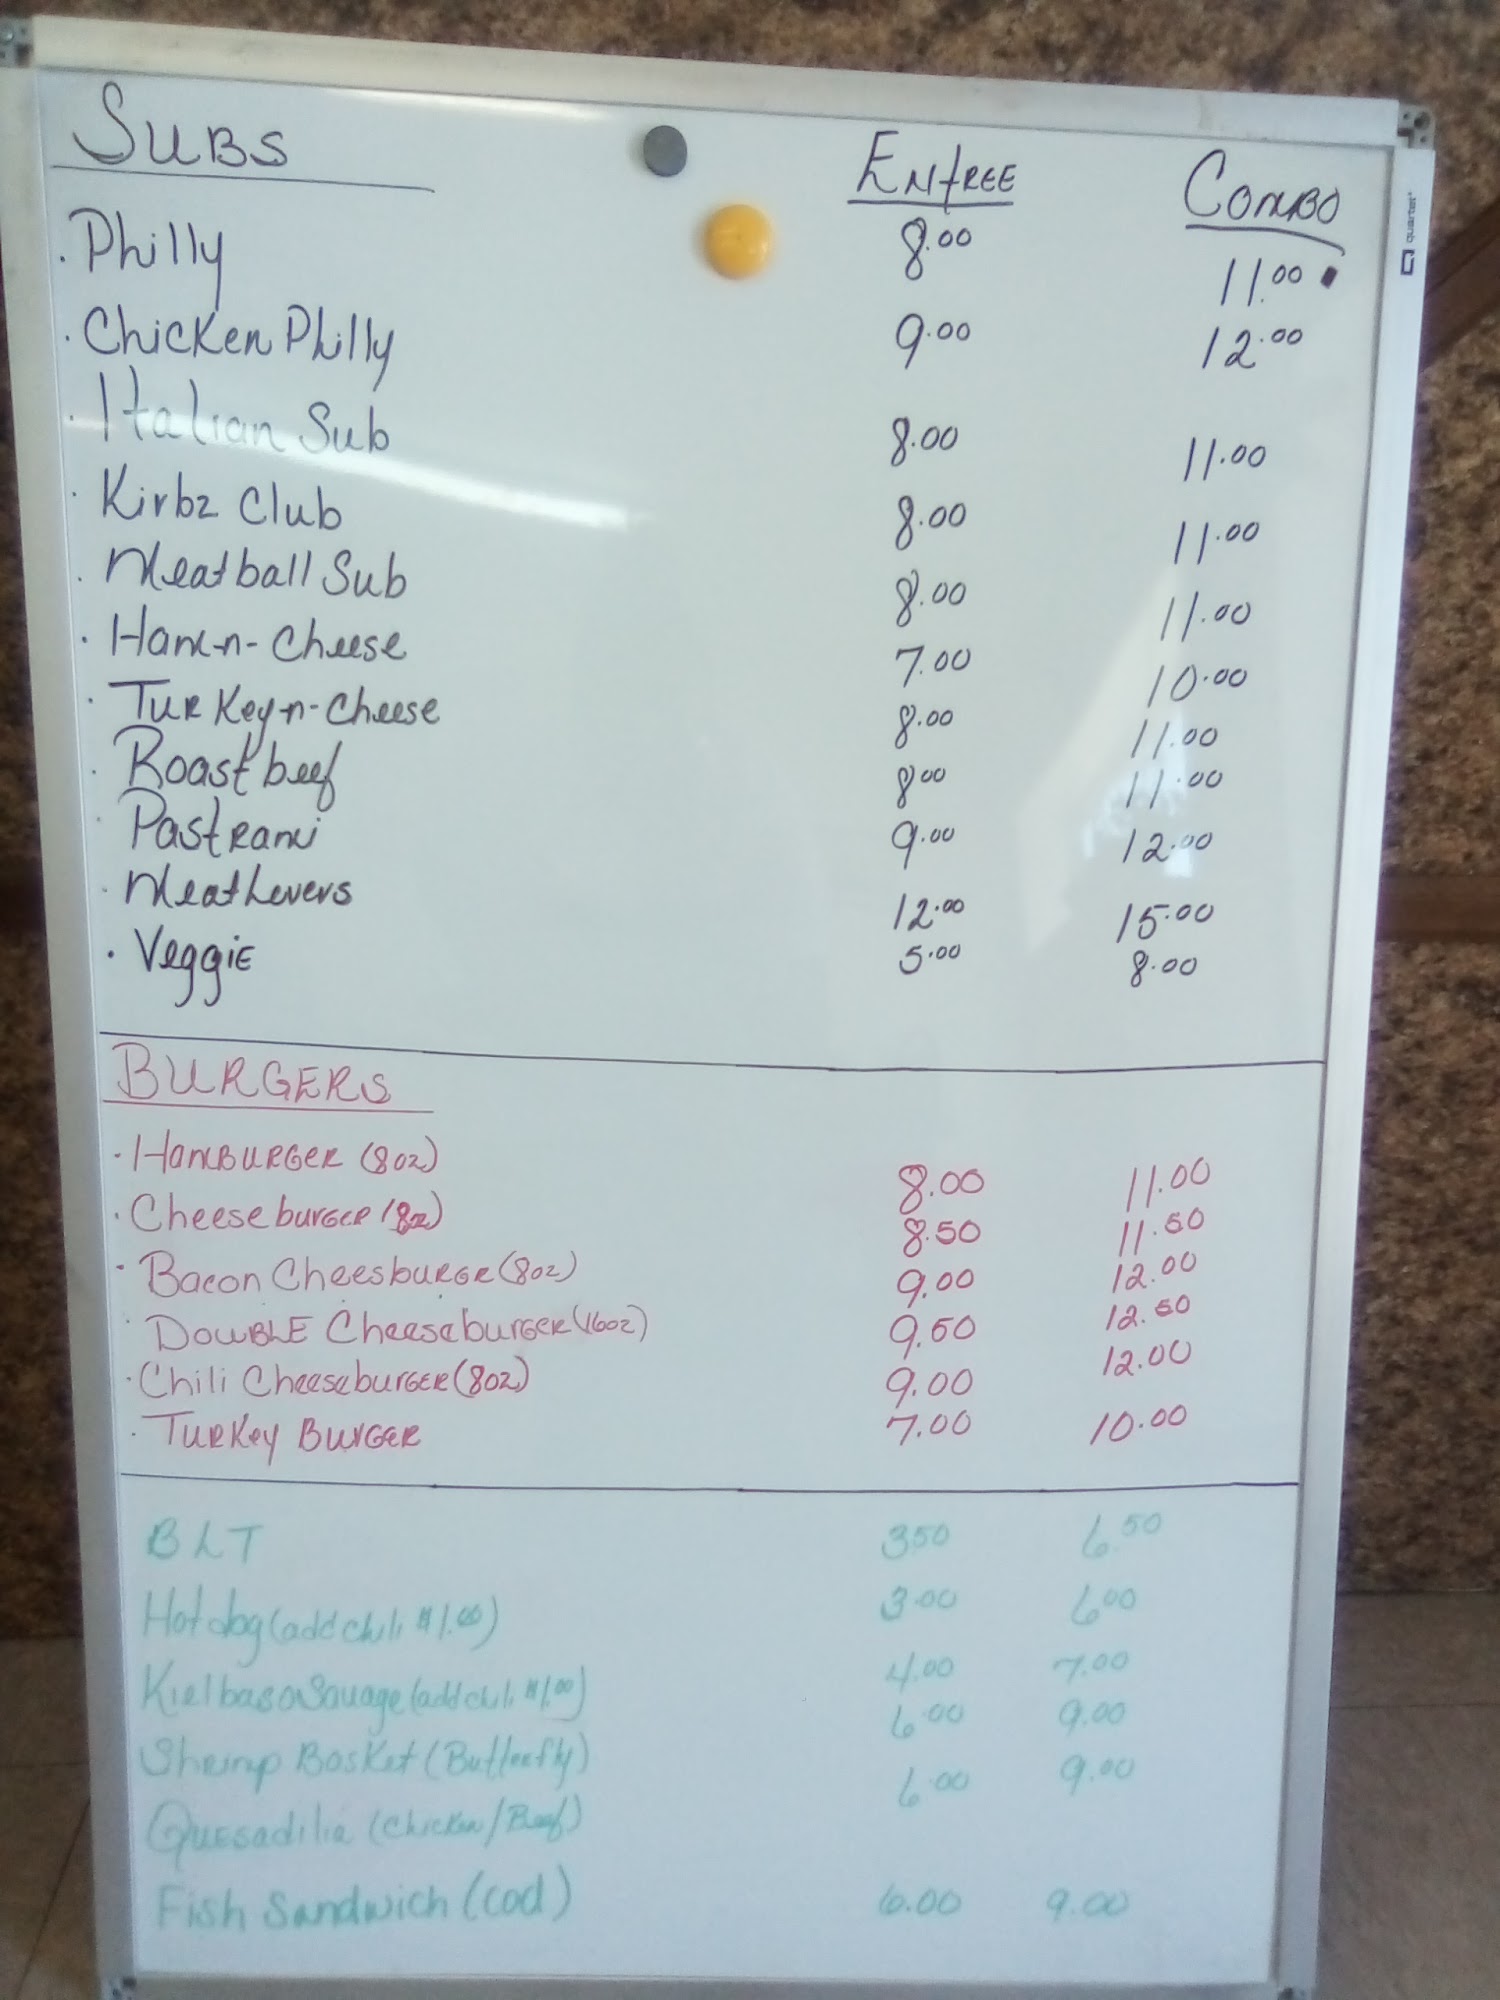 SUBS Entree Combo
· Philly 8.00 11.00
· Chicken Philly 9.00 12.00
· Italian Sub 8.00 11.00
· Kirbz Club 8.00 11.00
· Meatball Sub 8.00 11.00
· Ham-n-Cheese 7.00 10.00
· Turkey-n-Cheese 8.00 11.00
· Roast beef 8.00 11.00
· Pastrami 9.00 12.00
· Meat Lovers 12.00 15.00
· Veggie 5.00 8.00
BURGERS
· Hamburger (8oz) 8.00 11.00
· Cheeseburger (8oz) 8.50 11.50
· Bacon Cheesburger (8oz) 9.00 12.00
· Double Cheeseburger (16oz) 9.50 12.50
· Chili Cheeseburger (8oz) 9.00 12.00
· Turkey Burger 7.00 10.00
BLT 3.50 6.50
Hotdog (add chili $1.00) 3.00 6.00
Kielbasa Sauage (add chili $1.00) 4.00 7.00
Shrimp Basket (Butterfly) 6.00 9.00
Quesadilia (Chicken/Beef) 6.00 9.00
Fish Sandwich (cod) 6.00 9.00
quartet